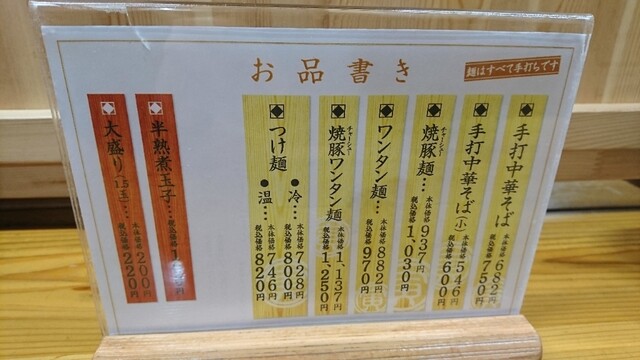 お品書き
麺はすべて手打ちです
手打中華そば
本体価格 682円
税込価格 750円
手打中華そば(小)…
本体価格 546円
税込価格 600円
焼豚麺…
チャーシュー
本体価格 937円
税込価格 1,030円
ワンタン麺…
本体価格 882円
税込価格 970円
焼豚ワンタン麺
チャーシュー
本体価格 1,137円
税込価格 1,250円
つけ麺
●冷…
本体価格 728円
税込価格 800円
●温…
本体価格 746円
税込価格 820円
半熟煮玉子…
税込価格
大盛り(1.5玉)…
本体価格 200円
税込価格 220円